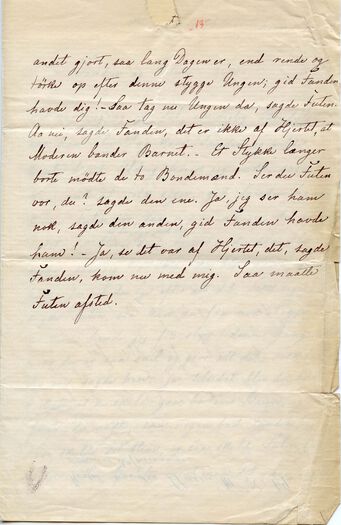 5.
13
andet gjort, saa lang Dagen er, end rende og
tørke op efter denne stygge Ungen; gid Fanden
havde dig! – Saa tag nu Ungen da, sagde Futen.
Aa nei, sagde Fanden, det er ikke af Hjertet, at
Moderen bander Barnet. – Et Stykke længer
borte mødte de to Bondemænd. Ser du Futen
vor, du? sagde den ene. Ja, jeg ser ham
nok, sagde den anden, gid Fanden havde
ham! – Ja, se det var af Hjertet, det, sagde
Fanden, kom nu med mig. Saa maatte
Futen afsted.